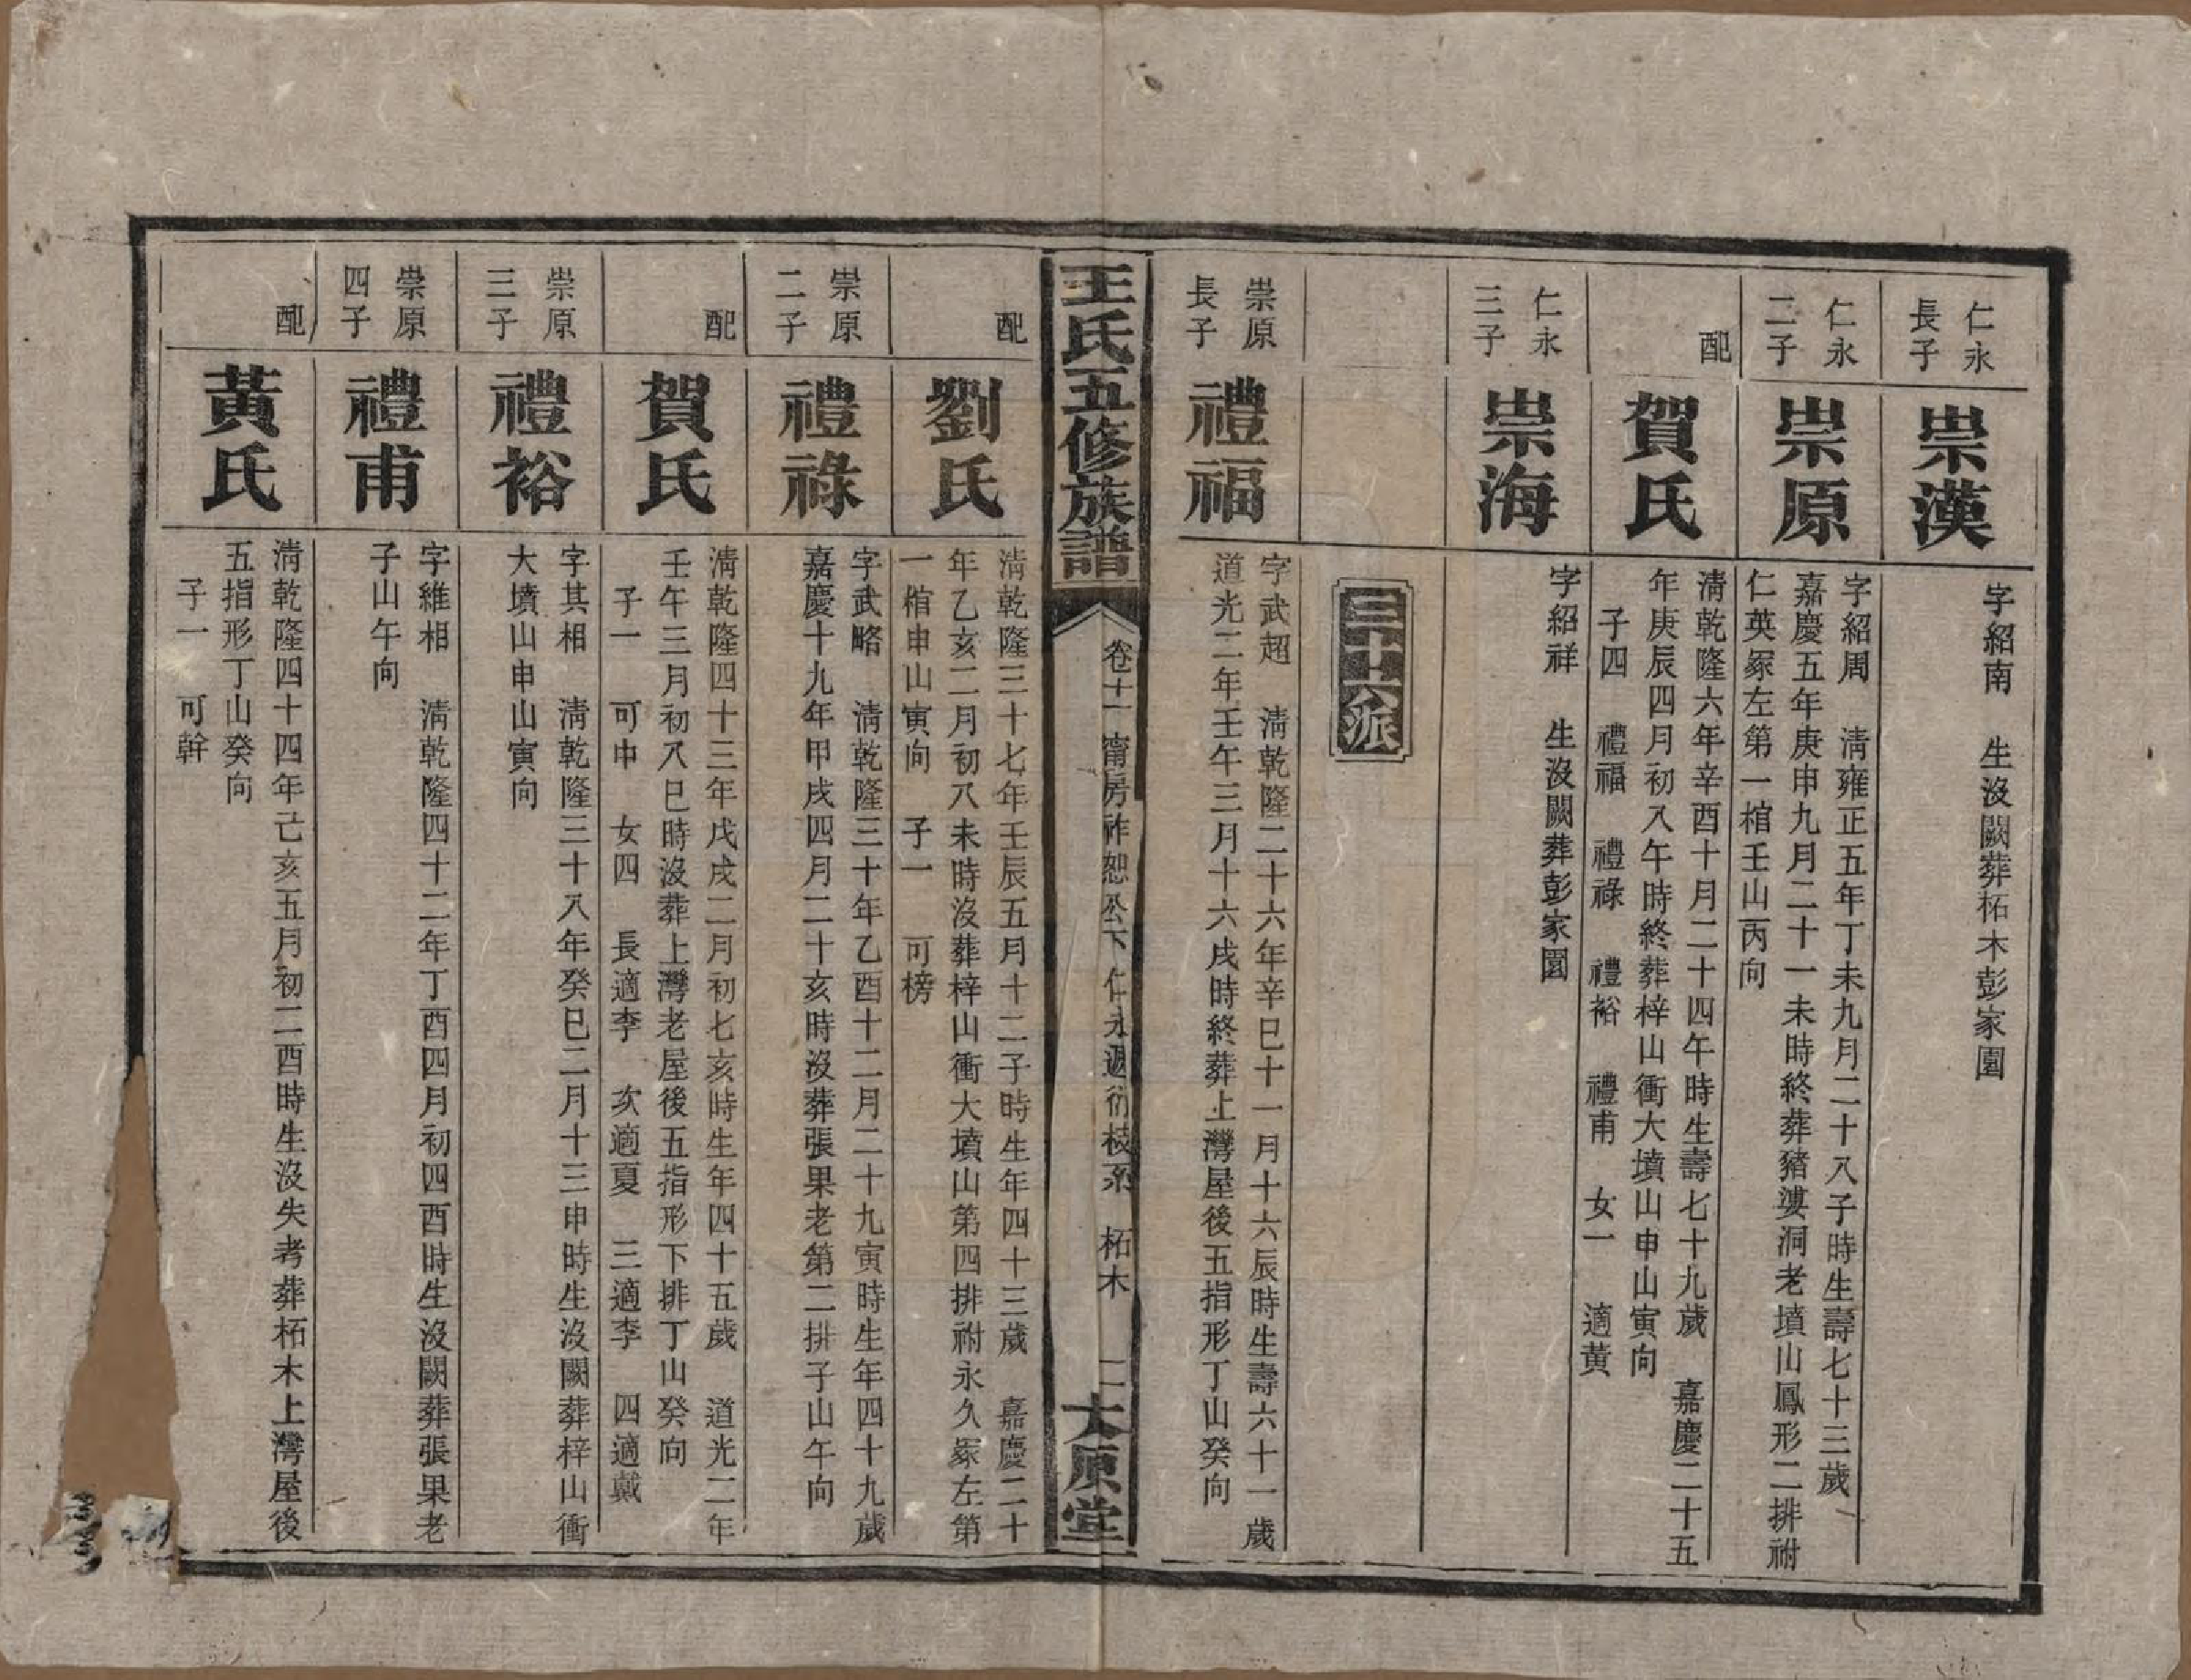 仁永
長子
崇漢
字紹南　生沒闕葬柘木彭家園
仁永
二子
崇原
字紹周　清雍正五年丁未九月二十八子時生壽七十三歲
嘉慶五年庚申九月二十一未時終葬豬婆洞老墳山鳳形二排祔
仁英冢左第一棺壬山丙向
配
賀氏
清乾隆六年辛酉十月二十四午時生壽七十九歲　嘉慶二十五
年庚辰四月初八午時終葬梓山衝大墳山申山寅向
子四　禮福　禮祿　禮裕　禮甫　女一　適黃
仁永
三子
崇海
字紹祥　生沒闕葬彭家園
三十六派
崇原
長子
禮福
字武超　清乾隆二十六年辛巳十一月十六辰時生壽六十一歲
道光二年壬午三月十六戌時終葬上灣屋後五指形丁山癸向
王氏五修族譜
卷十一 甯房祚恕公下仁永遜衍枝系　柘木　二
太原堂
配
劉氏
清乾隆三十七年壬辰五月十二子時生年四十三歲　嘉慶二十
年乙亥二月初八未時沒葬梓山衝大墳山第四排祔永久冢左第
一棺申山寅向　子一　可榜
崇原
二子
禮祿
字武略　清乾隆三十年乙酉十二月二十九寅時生年四十九歲
嘉慶十九年甲戌四月二十亥時沒葬張果老第二排子山午向
配
賀氏
清乾隆四十三年戊戌二月初七亥時生年四十五歲　道光二年
壬午三月初八巳時沒葬上灣老屋後五指形下排丁山癸向
子一　可中　女四　長適李　次適夏　三適李　四適戴
崇原
三子
禮裕
字其相　清乾隆三十八年癸巳二月十三申時生沒闕葬梓山衝
大墳山申山寅向
崇原
四子
禮甫
字維相　清乾隆四十二年丁酉四月初四酉時生沒闕葬張果老
子山午向
配
黃氏
清乾隆四十四年己亥五月初二酉時生沒失考葬柘木上灣屋後
五指形丁山癸向
子一　可幹